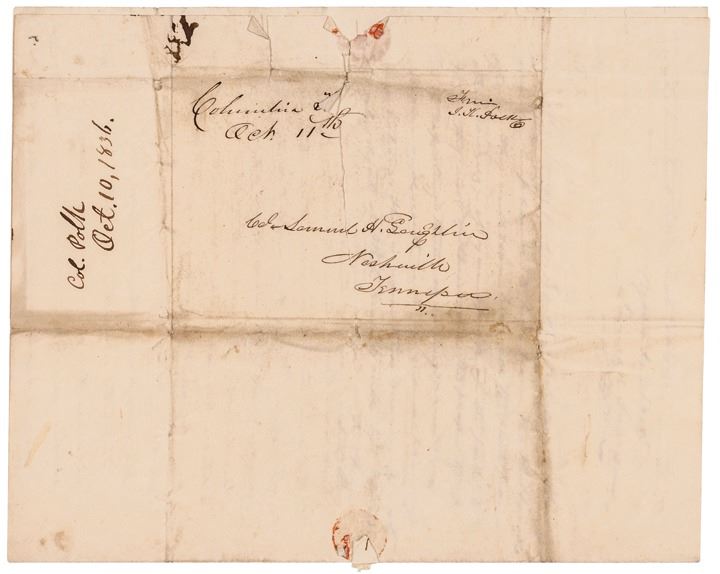 Col. Polk
Oct. 10, 1836.
Columbia T.
Oct. 11th
Free
J. K. Polk
Col. Samuel H. Laughlin
Nashville
Tennessee.